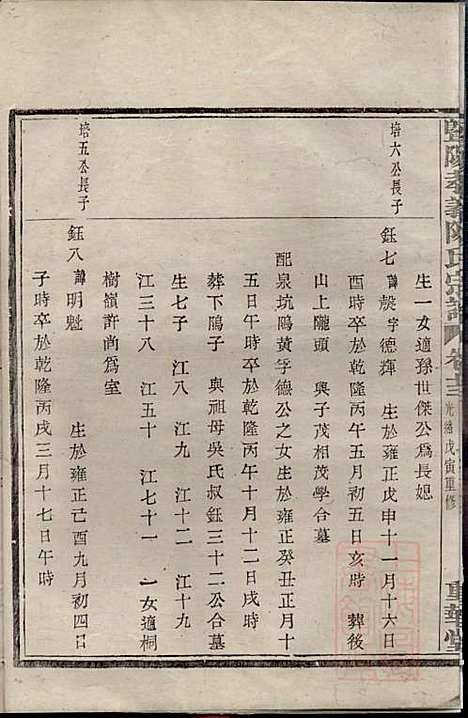 暨陽孝義陳氏宗譜 卷十三 光緒戊寅重修 重華堂
生一女適孫世傑公爲長媳
培六公長子
鈺七 諱發字德輝 生於雍正戊申十一月十六日
酉時卒於乾隆丙午五月初五日亥時 葬後
山上隴頭 與子茂相茂學合墓
配泉坑鴟黃孚德公之女生於雍正癸丑正月十
五日午時卒於乾隆丙午十月十二日戌時
葬下鴟子 與祖母吳氏叔鈺三十二公合墓
生七子 江八 江九 江十二 江十九
江三十八 江五十 江七十一 一女適桐
樹嶺許尚爲室
培五公長子
鈺八 諱明魁 生於雍正己酉九月初四日
子時卒於乾隆丙戌三月十七日午時